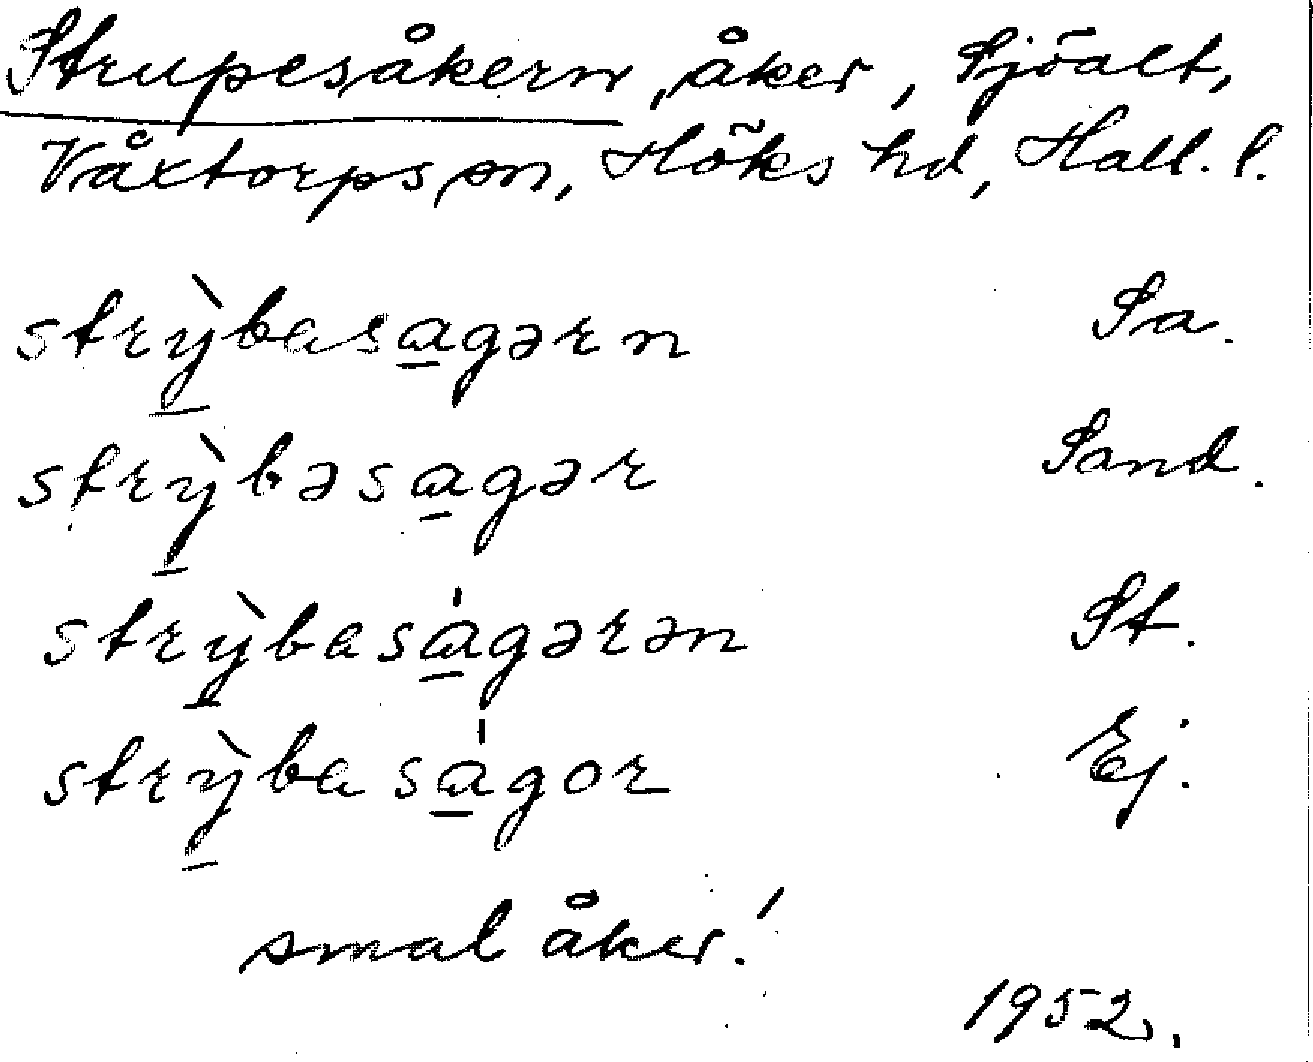 Strupesåkern, åker, Sjöalt,
Våxtorps sn, Höks hd, Hall. l.
strỳ̠basa̠gərn Sa.
strỳ̠bəsa̠gər Sand.
strỳ̠basa̠̍gərən St.
strỳ̠basa̠̍gor Ej.
smal åker!
1952.